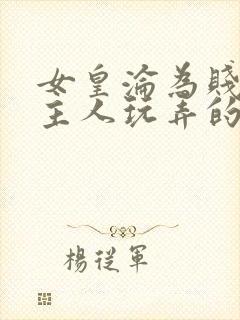 女皇淪為賤
主人玩弄的
楊從軍